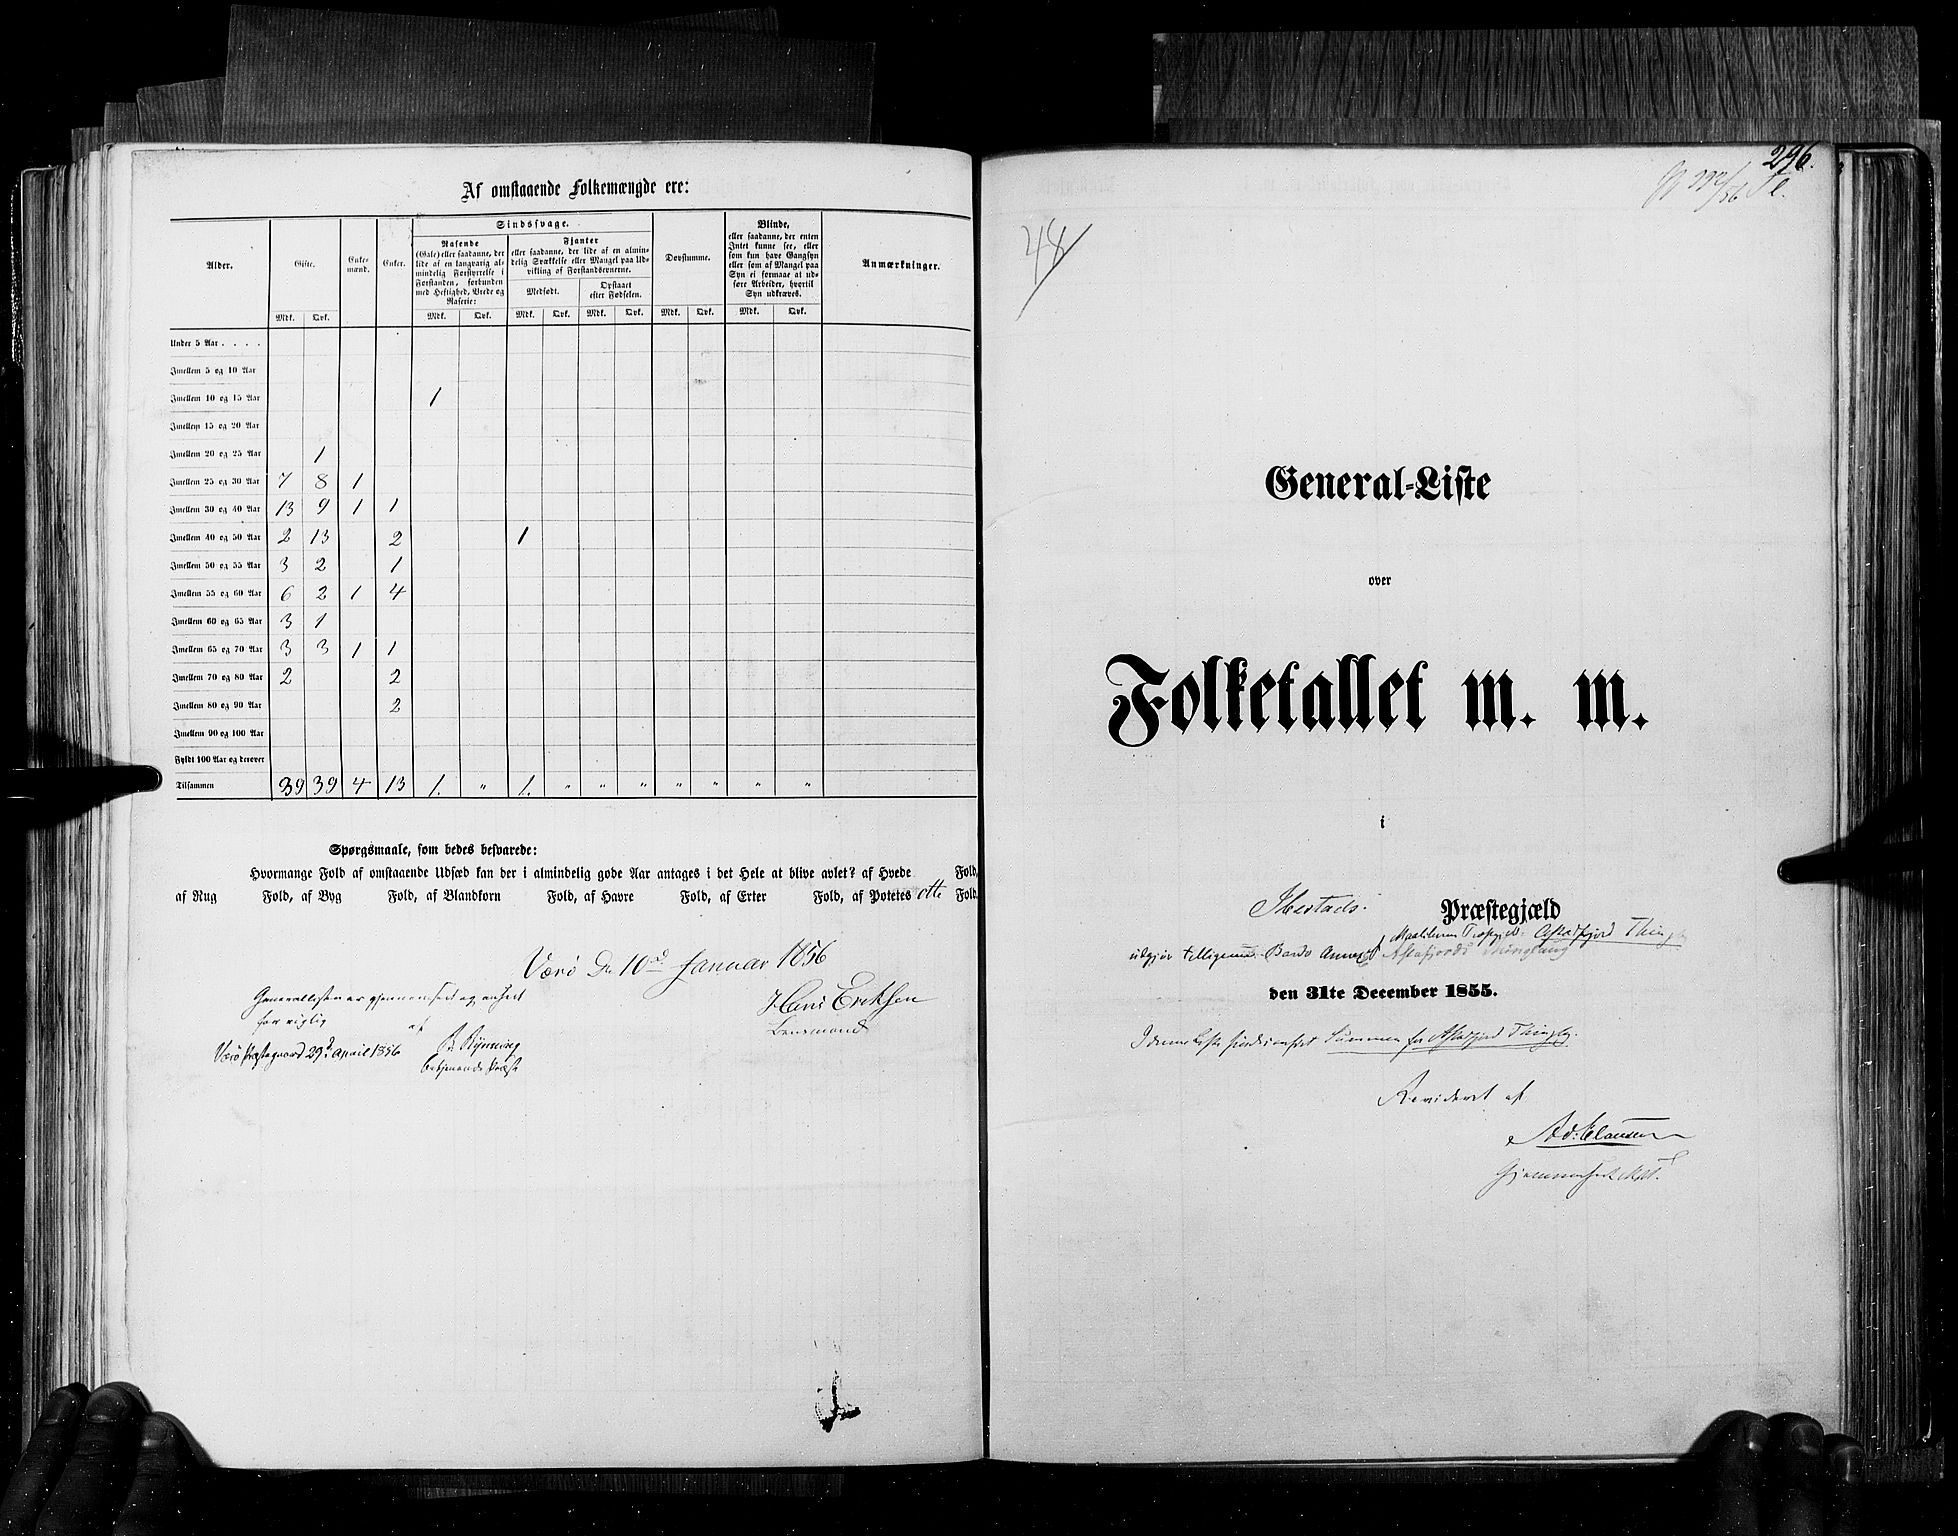 Af omstaaende Folkemængde ere:
Alder. Gifte. Enkemænd. Enker. Sindssvage. Døvstumme. Blinde, Anmærkninger.
Rasende (Gale) eller saadanne, der lide af en langvarig almindelig Forstyrrelse i Forstanden, forbunden med Heftighed, Vrede og Raserie:
Fjanter eller saadanne, der lide af en almindelig Svækkelse eller Mangel paa Udvikling af Forstandsevnerne.
Medfødt. Opstaaet efter Fødselen.
eller saadanne, der enten Intet kunne see, eller som kun have Gangsyn eller som af Mangel paa Syn ei formaae at udføre Arbeider, hvortil Syn udkræves.
Mdk. Qvk. Mdk. Qvk. Mdk. Qvk. Mdk. Qvk. Mdk. Qvk. Mdk. Qvk.
Under 5 Aar . . . .
Imellem 5 og 10 Aar
Imellem 10 og 15 Aar 1
Imellem 15 og 20 Aar
Imellem 20 og 25 Aar 1
Imellem 25 og 30 Aar 7 8 1
Imellem 30 og 40 Aar 13 9 1 1
Imellem 40 og 50 Aar 2 13 2 1
Imellem 50 og 55 Aar 3 2 1
Imellem 55 og 60 Aar 6 2 1 4
Imellem 60 og 65 Aar 3 1
Imellem 65 og 70 Aar 3 3 1 1
Imellem 70 og 80 Aar 2 2
Imellem 80 og 90 Aar 2
Imellem 90 og 100 Aar
Fyldt 100 Aar og derover
Tilsammen 39 39 4 13 1. " 1. " " " " " " "
Spørgsmaale, som bedes besvarede:
Hvormange Fold af omstaaende Udsæd kan der i almindelig gode Aar antages i det Hele at blive avlet? af Hvede Fold,
af Rug Fold, af Byg Fold, af Blandkorn Fold, af Havre Fold, af Erter Fold, af Potetes otte Fold.
Værø den 10de Januar 1856
Hans Eriksen
Lensmand
Generallisten er gjennemseet og anseet
for rigtig af
Værø Præstegaard 29de April 1856 B. Rynning
296.
48
General-Liste
over
Folketallet m. m.
i
Ibestads Præstegjæld
udgjør tilligemed Bardo Annex Astafjords Thinglaug
den 31te December 1855.
Summen for Astafjord Thinglg.
Revideret af
Ad: Clausen